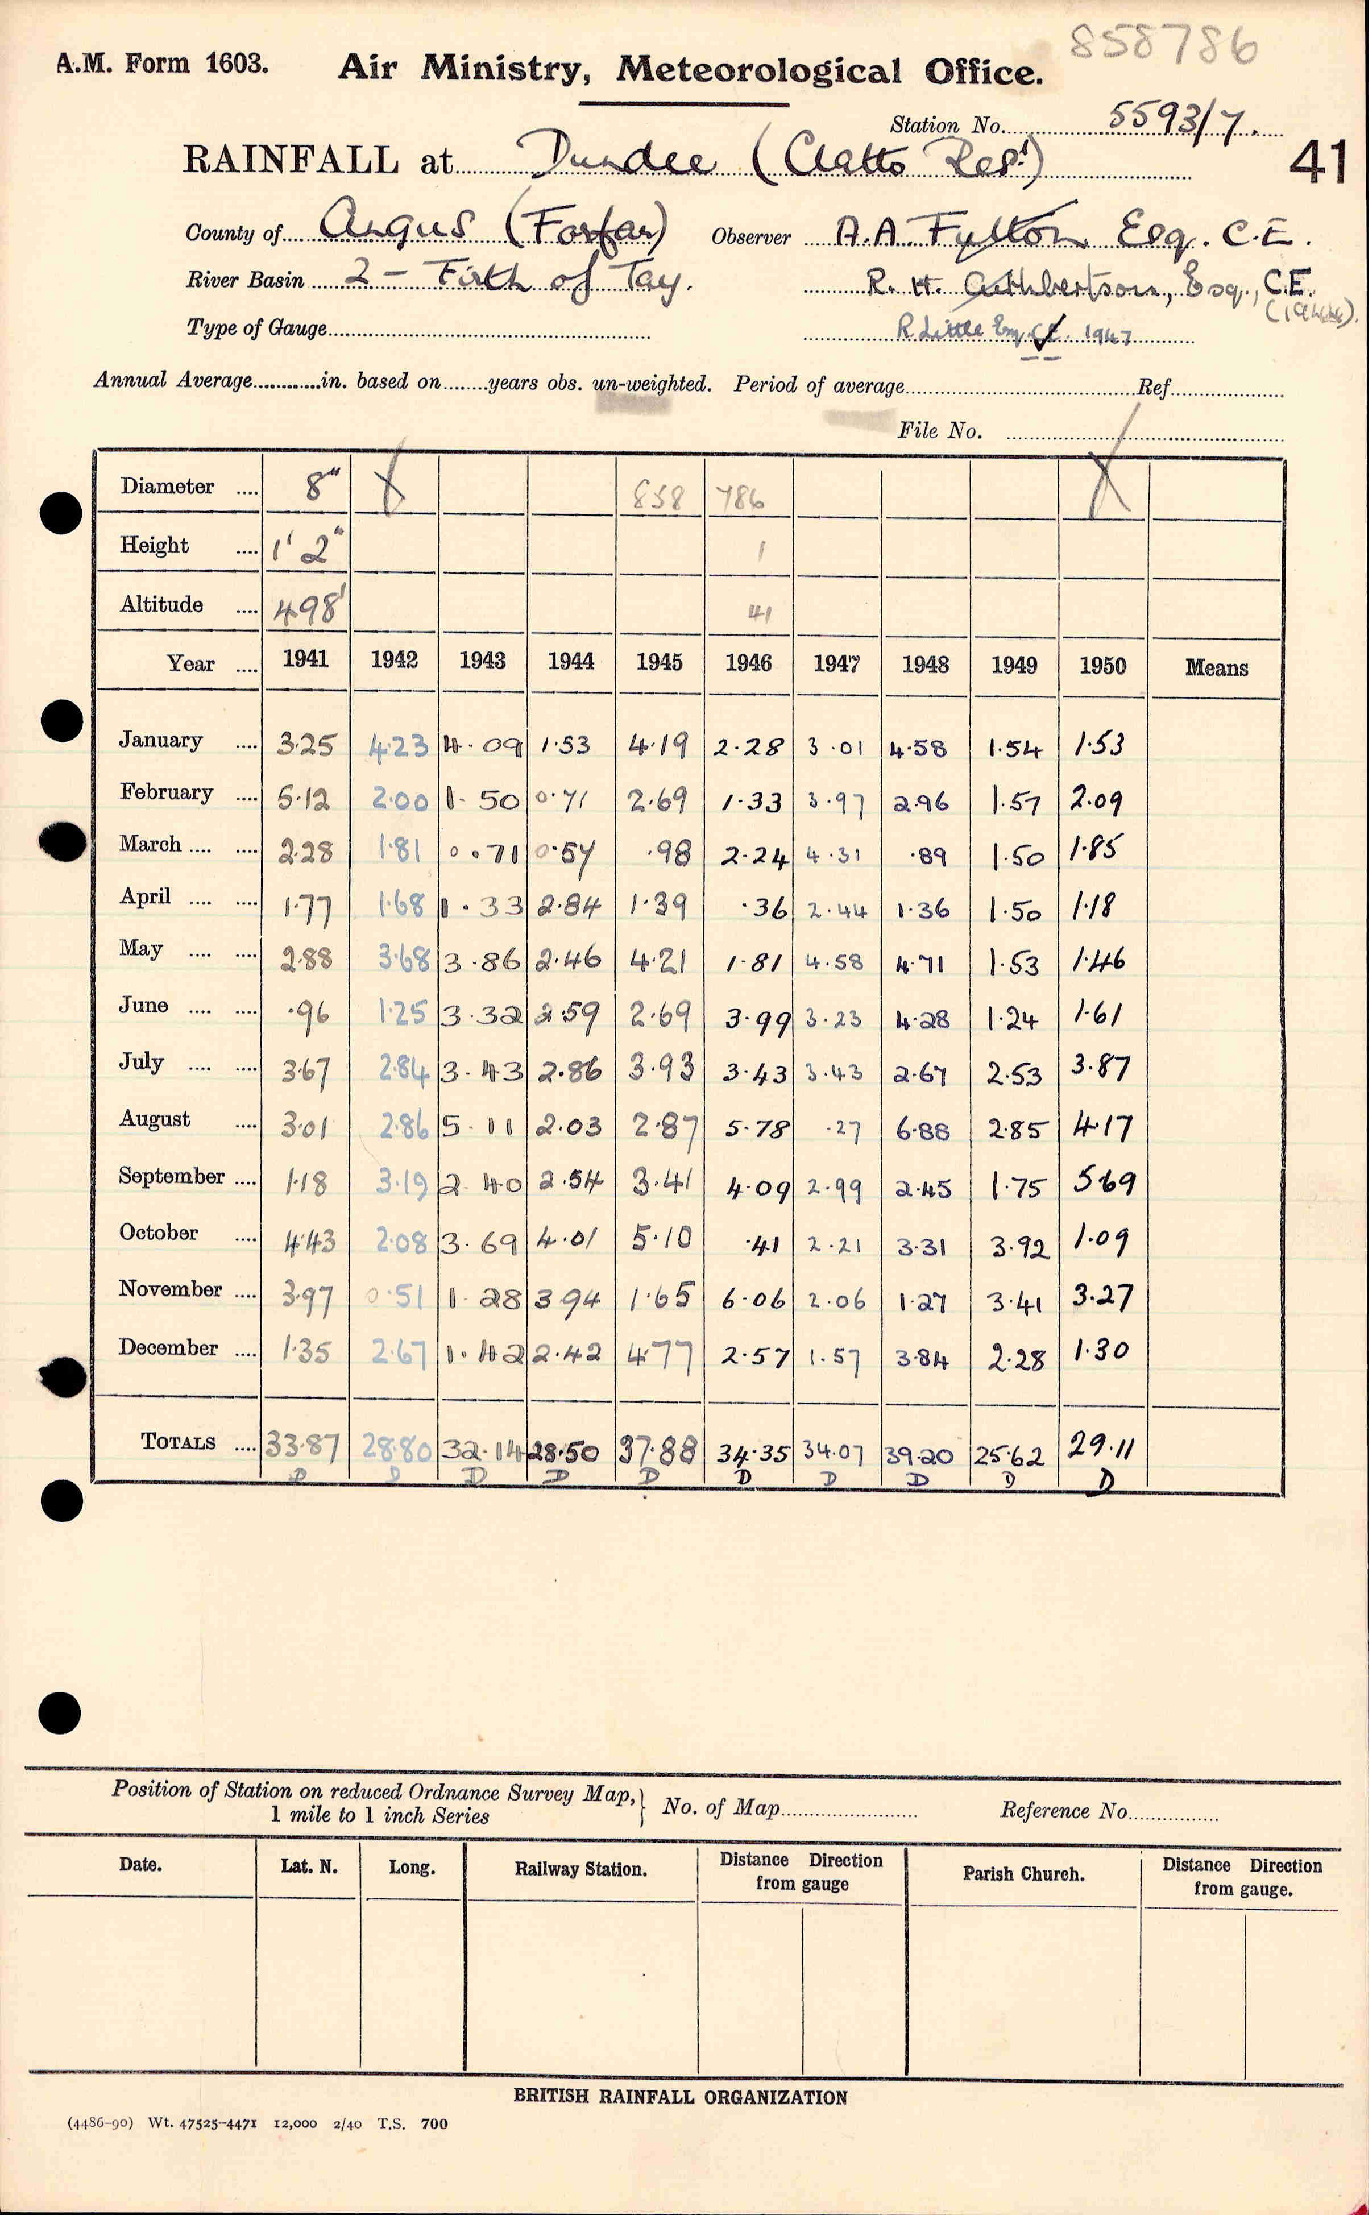 858786
A.M. Form 1603. Air Ministry, Meteorological Office.
Station No. 5593/7.
RAINFALL at Dundee (Clatto Resr) 41
County of Angus (Forfar) Observer A.A. Fulton Esq. C.E.
River Basin 2 - Firth of Tay. R. H. Cuthbertson, Esq., C.E.
(1944).
Type of Gauge R Little Esq. C.E. 1947
Annual Average in. based on years obs. un-weighted. Period of average Ref.
File No.
Diameter .... 8" 858 786
Height .... 1' 2" 1
Altitude .... 498' 41
Year .... 1941 1942 1943 1944 1945 1946 1947 1948 1949 1950 Means
January .... 3.25 4.23 4.09 1.53 4.19 2.28 3.01 4.58 1.54 1.53
February .... 5.12 2.00 1.50 0.71 2.69 1.33 3.97 2.96 1.57 2.09
March .... .... 2.28 1.81 0.71 0.57 .98 2.24 4.31 .89 1.50 1.85
April .... .... 1.77 1.68 1.33 2.84 1.39 .36 2.44 1.36 1.50 1.18
May .... .... 2.88 3.68 3.86 2.46 4.21 1.81 4.58 4.71 1.53 1.46
June .... .... .96 1.25 3.32 2.59 2.69 3.99 3.23 4.28 1.24 1.61
July .... .... 3.67 2.84 3.43 2.86 3.93 3.43 3.43 2.67 2.53 3.87
August .... 3.01 2.86 5.11 2.03 2.87 5.78 .27 6.88 2.85 4.17
September .... 1.18 3.19 2.40 2.54 3.41 4.09 2.99 2.45 1.75 5.69
October .... 4.43 2.08 3.69 4.01 5.10 .41 2.21 3.31 3.92 1.09
November .... 3.97 0.51 1.28 3.94 1.65 6.06 2.06 1.27 3.41 3.27
December .... 1.35 2.67 1.42 2.42 4.77 2.57 1.57 3.84 2.28 1.30
TOTALS .... 33.87 28.80 32.14 28.50 37.88 34.35 34.07 39.20 25.62 29.11
D D D D D D D D D D
Position of Station on reduced Ordnance Survey Map, } No. of Map Reference No.
1 mile to 1 inch Series
Date. Lat. N. Long. Railway Station. Distance Direction from gauge Parish Church. Distance Direction from gauge.
BRITISH RAINFALL ORGANIZATION
(4486-90) Wt. 47525-4471 12,000 2/40 T.S. 700